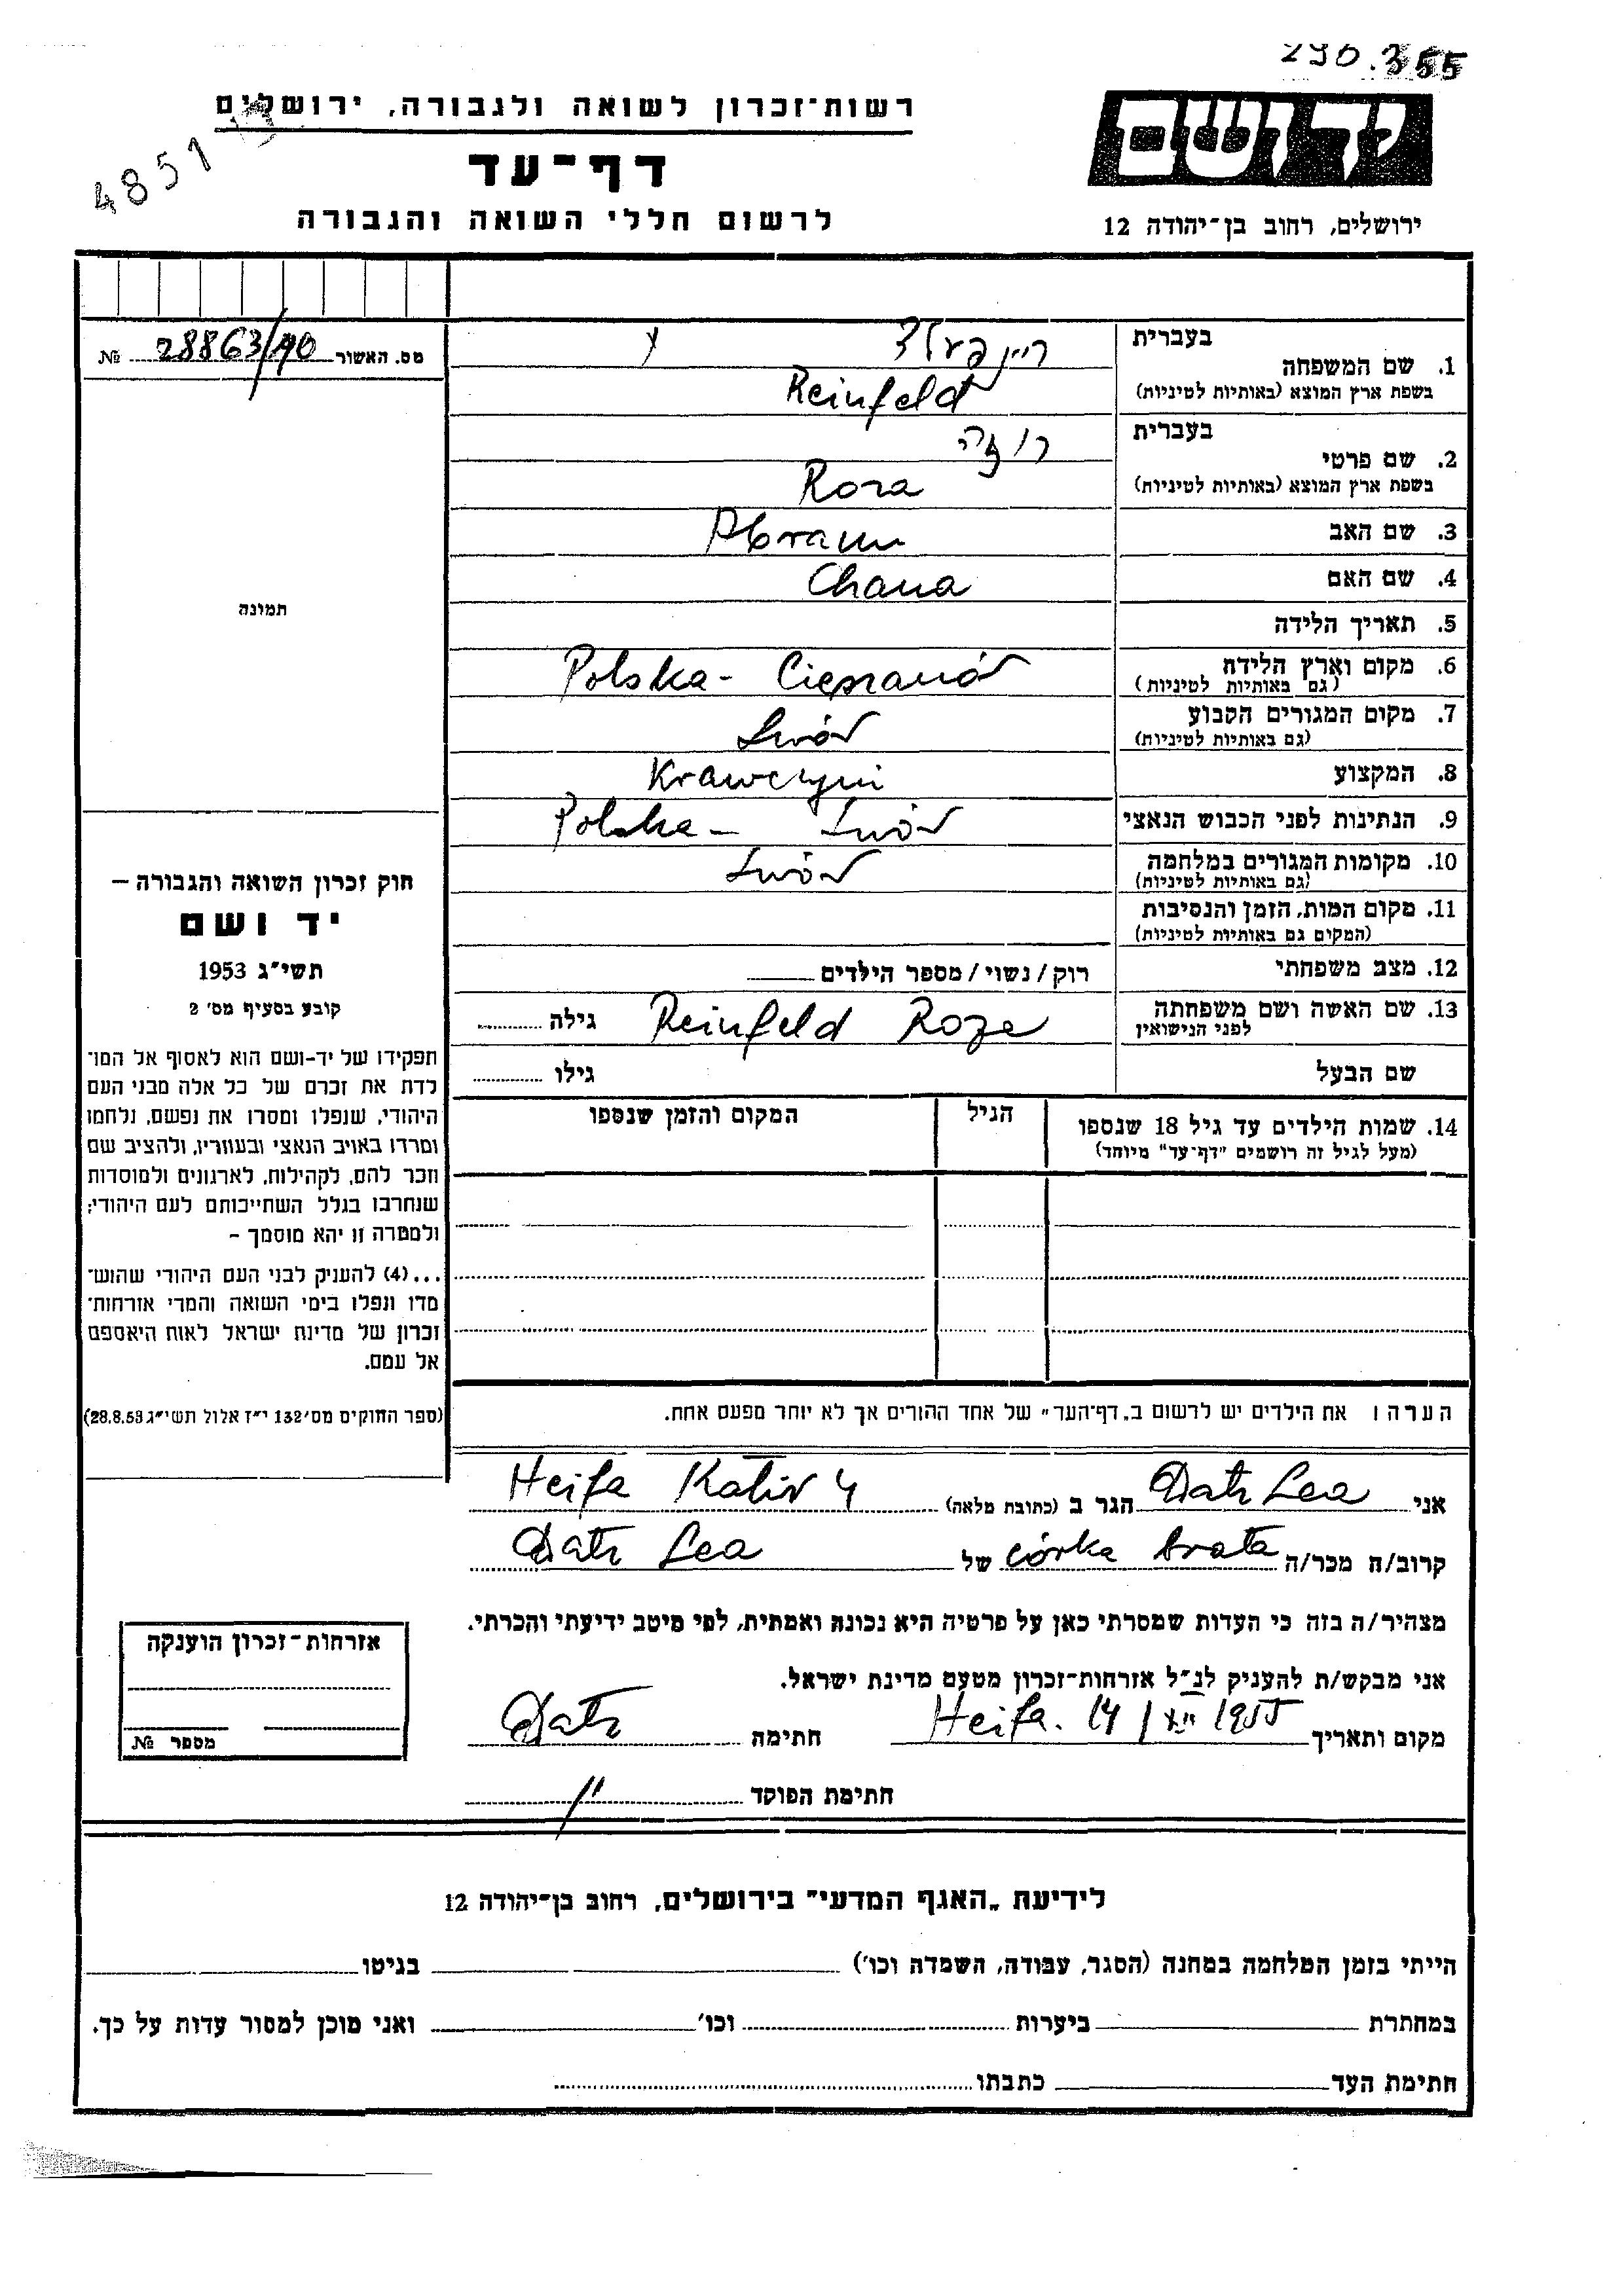 290.355
רשות-זכרון לשואה ולגבורה, ירושלים
4851
דף-עד
לרשום חללי השואה והגבורה
יד ושם
ירושלים, רחוב בן-יהודה 12
מס. האשור 28863/40 №
תמונה
חוק זכרון השואה והגבורה –
יד ושם
תשי״ג 1953
קובע בסעיף מס׳ 2
תפקידו של יד-ושם הוא לאסוף אל המו־
לדת את זכרם של כל אלה מבני העם
היהודי, שנפלו ומסרו את נפשם, נלחמו
ומרדו באויב הנאצי ובעוזריו, ולהציב שם
וזכר להם, לקהילות, לארגונים ולמוסדות
שנחרבו בגלל השתייכותם לעם היהודי;
ולמטרה זו יהא מוסמך –
...(4) להעניק לבני העם היהודי שהוש־
מדו ונפלו בימי השואה והמרי אזרחות־
זכרון של מדינת ישראל לאות היאספם
אל עמם.
(ספר החוקים מס׳ 132 י״ז אלול תשי״ג 28.8.53)
1. שם המשפחה
בעברית ריינפעלד
בשפת ארץ המוצא (באותיות לטיניות) Reinfeld
2. שם פרטי
בעברית רוזה
בשפת ארץ המוצא (באותיות לטיניות) Roza
3. שם האב Abram
4. שם האם Chana
5. תאריך הלידה
6. מקום וארץ הלידה Polska - Cieszanów
(גם באותיות לטיניות)
7. מקום המגורים הקבוע Lwów
(גם באותיות לטיניות)
8. המקצוע Krawczyni
9. הנתינות לפני הכבוש הנאצי Polska - Lwów
10. מקומות המגורים במלחמה Lwów
(גם באותיות לטיניות)
11. מקום המות, הזמן והנסיבות
(המקום גם באותיות לטיניות)
12. מצב משפחתי רוק/נשוי/מספר הילדים
13. שם האשה ושם משפחתה Reinfeld Roze גילה
לפני הנישואין
שם הבעל גילו
14. שמות הילדים עד גיל 18 שנספו הגיל המקום והזמן שנספו
(מעל לגיל זה רושמים "דף-עד" מיוחד)
הערה: את הילדים יש לרשום ב„דף-העד" של אחד ההורים אך לא יותר מפעם אחת.
אני Datz Lea הגר ב (כתובת מלאה) Heifa Kativ 4
קרוב/ה מכר/ה córka brata של Datz Lea
מצהיר/ה בזה כי העדות שמסרתי כאן על פרטיה היא נכונה ואמתית, לפי מיטב ידיעתי והכרתי.
אני מבקש/ת להעניק לנ״ל אזרחות-זכרון מטעם מדינת ישראל.
מקום ותאריך Heifa. 14/XII 1955 חתימה Datz
חתימת הפוקד
אזרחות-זכרון הוענקה
מספר №
לידיעת „האגף המדעי" בירושלים, רחוב בן-יהודה 12
הייתי בזמן המלחמה במחנה (הסגר, עבודה, השמדה וכו׳) בגיטו
במחתרת ביערות וכו׳ ואני מוכן למסור עדות על כך.
חתימת העד כתבתו